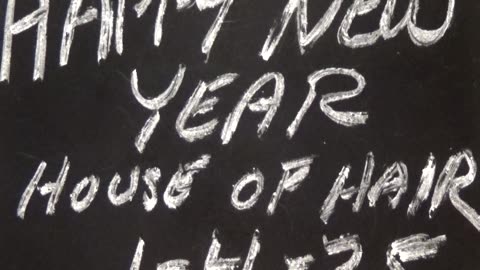 HAPPY NEW
YEAR
HOUSE OF HAIR